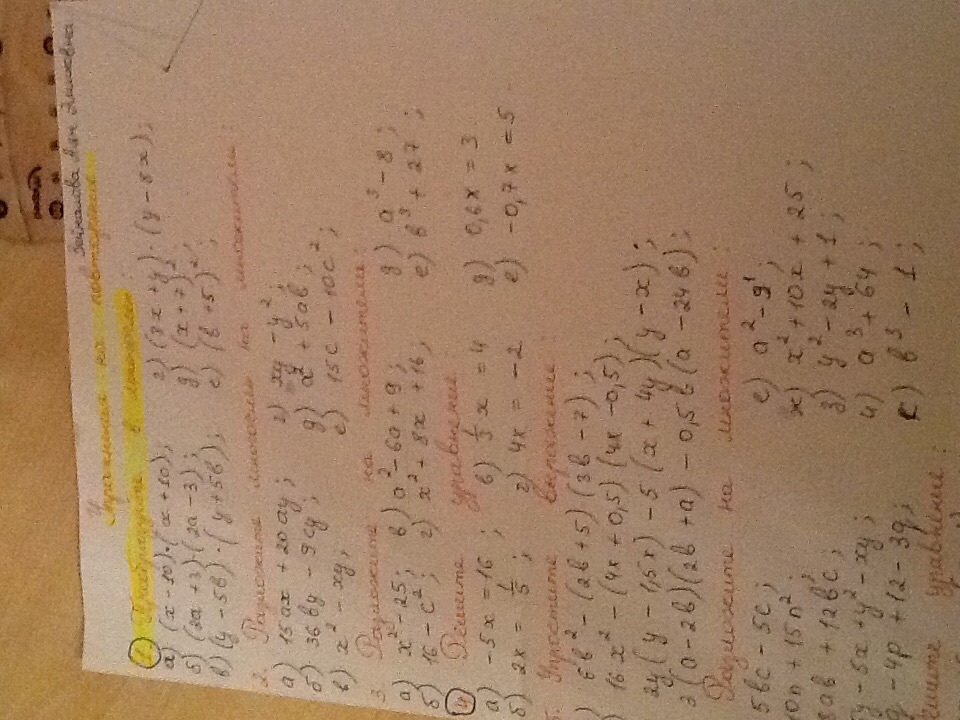 Упражнения на повторение.
1. Преобразуйте в многочлен
а) (x-10)·(x+10); г) (8x+y)·(y-8x);
б) (2a+3)·(2a-3); д) (x+7)²;
в) (y-5b)·(y+5b); е) (b+5)²;
2. Разложите многочлен на множители:
а) 15ax + 20ay; г) xy - y²;
б) 36by - 9cy; д) a² + 5ab;
в) x² - xy; е) 15c - 10c²;
3. Разложите на множители:
а) x² - 25; в) a² - 6a + 9; д) a³ - 8;
б) 16 - c²; г) x² + 8x + 16; е) b³ + 27;
4. Решите уравнение
а) -5x = 16; в) 1/3 x = 4 д) 0,6x = 3
б) 2x = 1/5; г) 4x = -2 е) -0,7x = 5
5. Упростите выражение:
6b² - (2b+5)(3b-7);
16x² - (4x+0,5)(4x-0,5);
2y(y-1,5x) - 5(x+4y)(y-x);
3(a-2b)(2b+a) - 0,5b(a-24b);
Разложите на множители:
5bc - 5c; е) a² - 9;
ж) x² + 10x + 25;
15n²; з) y² - 2y + 1;
ab + 12bc; и) a³ + 64;
- 5x + y² - xy; к) b³ - 1;
- 4p + 12 - 3q;
уравнение: